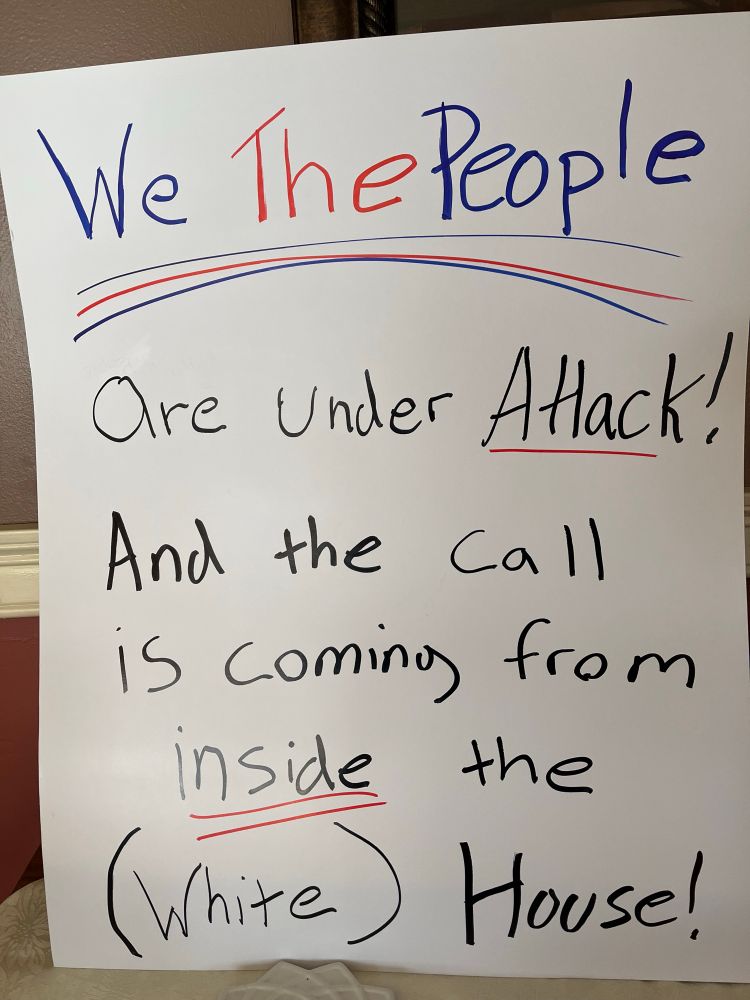 We The People
are under Attack!
And the call
is coming from
inside the
(White) House!